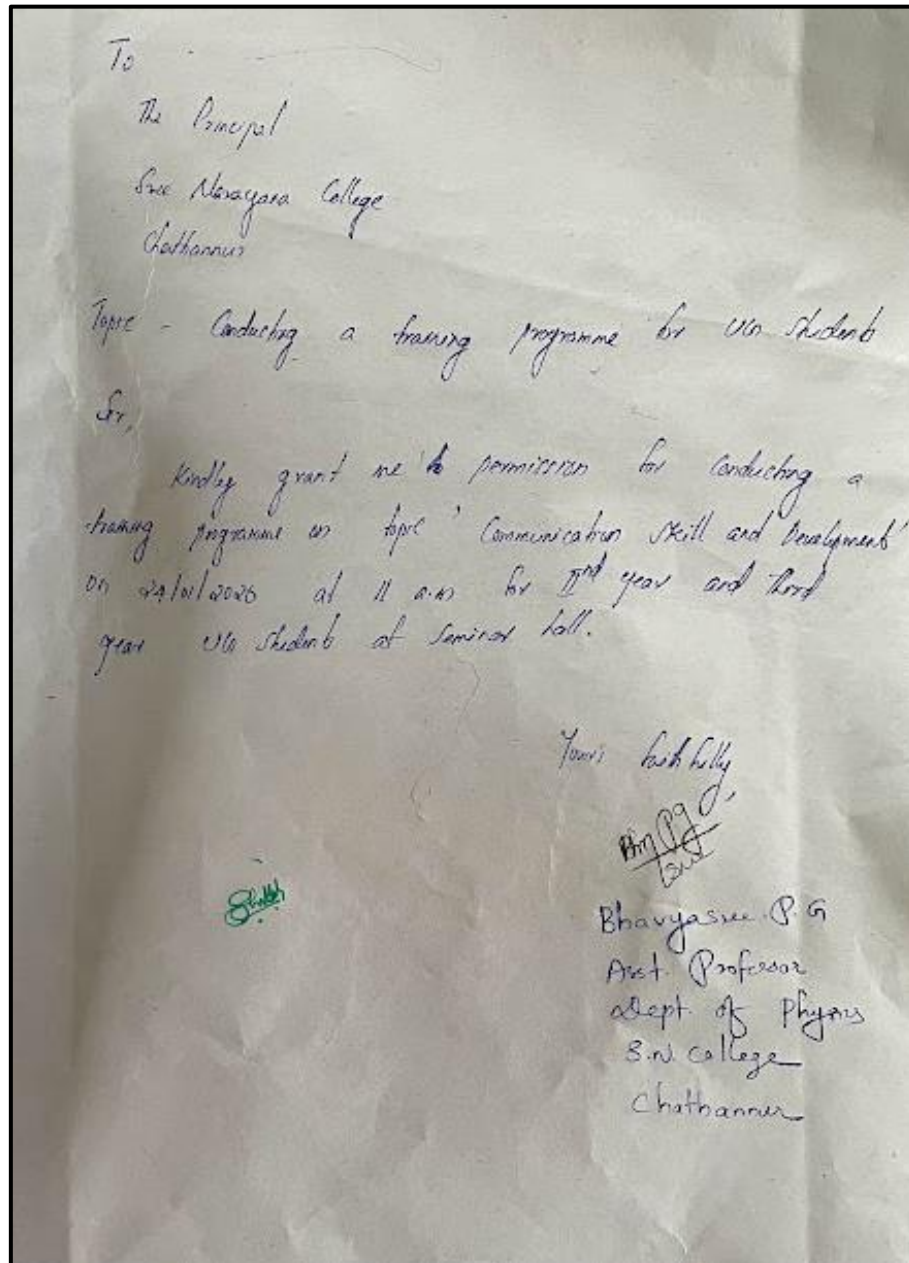 To
The Principal
Sree Narayana College
Chathannur
Topic - Conducting a training programme for UG students
Sir,
Kindly grant me permission for conducting a
training programme on topic ' Communication skill and Development'
on 24/01/2026 at 11 a.m for IInd year and third
year UG students at seminar hall.
Yours faithfully,
Bhavyasree. P. G
Asst. Professor
Dept. of Physics
S.N. College
Chathannur